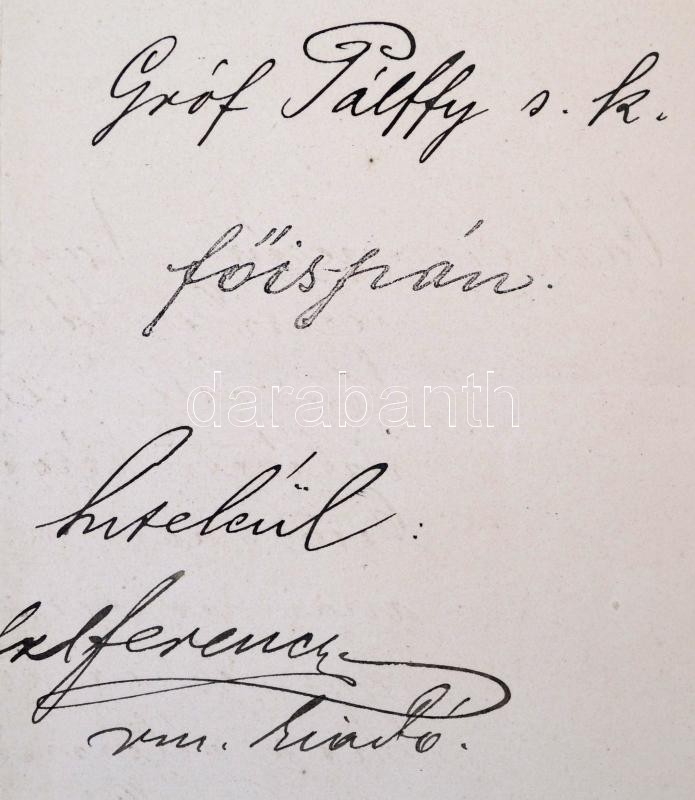 Gróf Pálffy s. k.
főispán.
darabanth
hiteléül:
Ferencz
vm. kiadó.